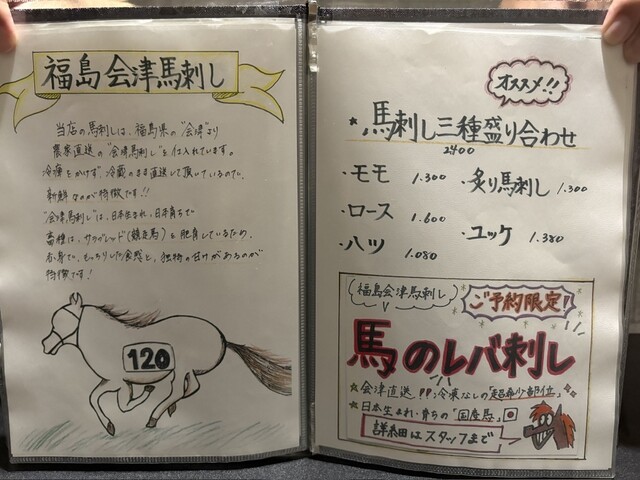 福島会津馬刺し
当店の馬刺しは、福島県の"会津"より
農家直送の"会津馬刺し"を仕入れています。
冷凍をかけず、冷蔵のまま直送して頂いているので、
新鮮なのが特徴です!!
"会津馬刺し"は、日本生まれ、日本育ちで
畜種は、サラブレッド(競走馬)を肥育しているため、
赤身で、もっちりした食感と、独特の甘けがあるのが
特徴です!
120
オススメ!!
★馬刺し三種盛り合わせ
2400
・モモ 1.300
・炙り馬刺し 1.300
・ロース 1.600
・ユッケ 1.380
・ハツ 1.080
福島会津馬刺し
ご予約限定!
馬のレバ刺し
★会津直送 冷凍なしの「超希少部位」
★日本生まれ・育ちの「国産馬」
詳細はスタッフまで